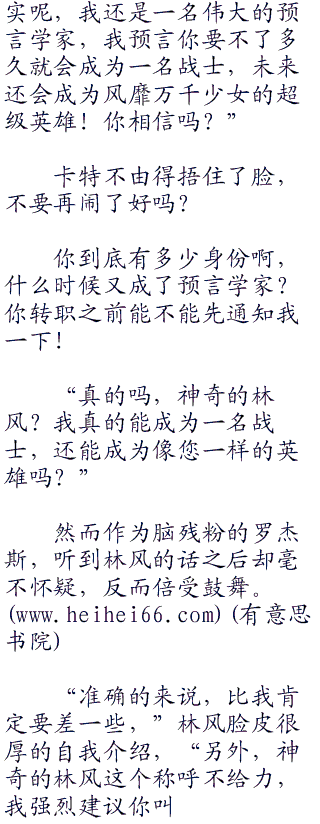 实呢，我还是一名伟大的预
言学家，我预言你要不了多
久就会成为一名战士，未来
还会成为风靡万千少女的超
级英雄！你相信吗？”
卡特不由得捂住了脸，
不要再闹了好吗？
你到底有多少身份啊，
什么时候又成了预言学家？
你转职之前能不能先通知我
一下！
“真的吗，神奇的林
风？我真的能成为一名战
士，还能成为像您一样的英
雄吗？”
然而作为脑残粉的罗杰
斯，听到林风的话之后却毫
不怀疑，反而倍受鼓舞。
(www.heihei66.com)(有意思
书院)
“准确的来说，比我肯
定要差一些，”林风脸皮很
厚的自我介绍，“另外，神
奇的林风这个称呼不给力，
我强烈建议你叫